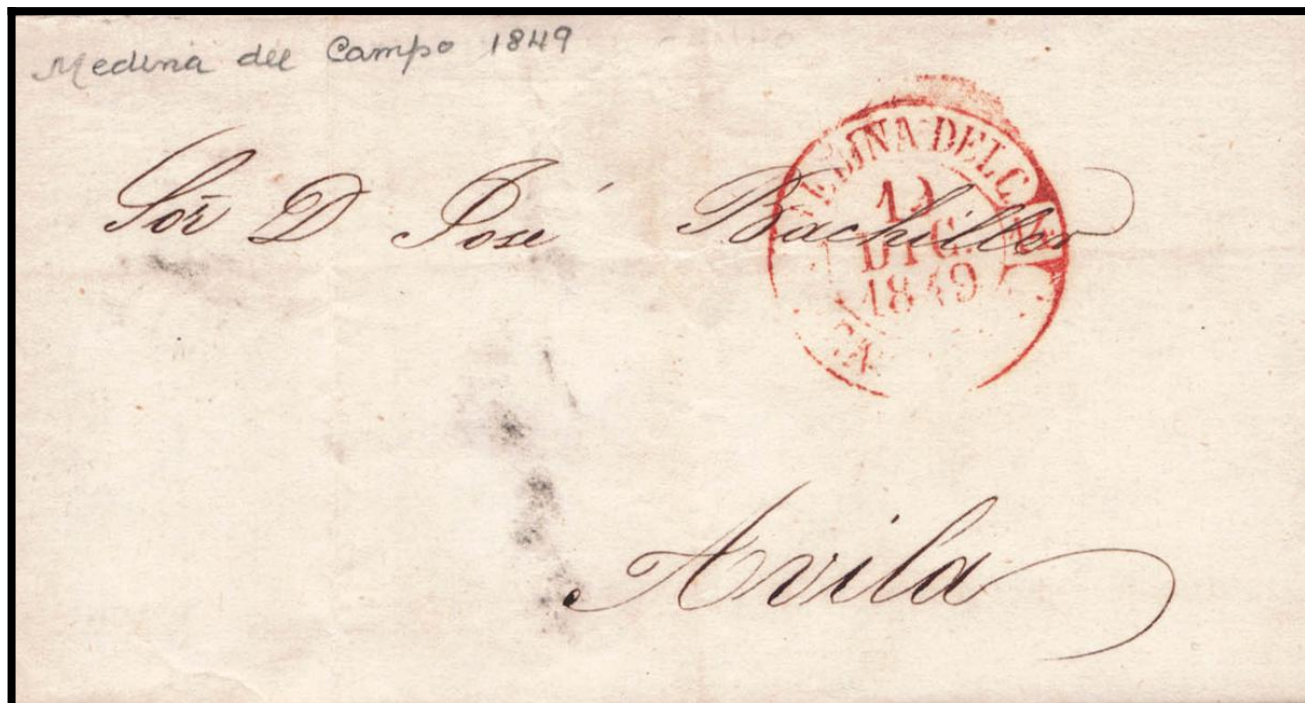 Medina del Campo 1849
Sor D José Bachiller
DEL C
DIC.
1849
Avila